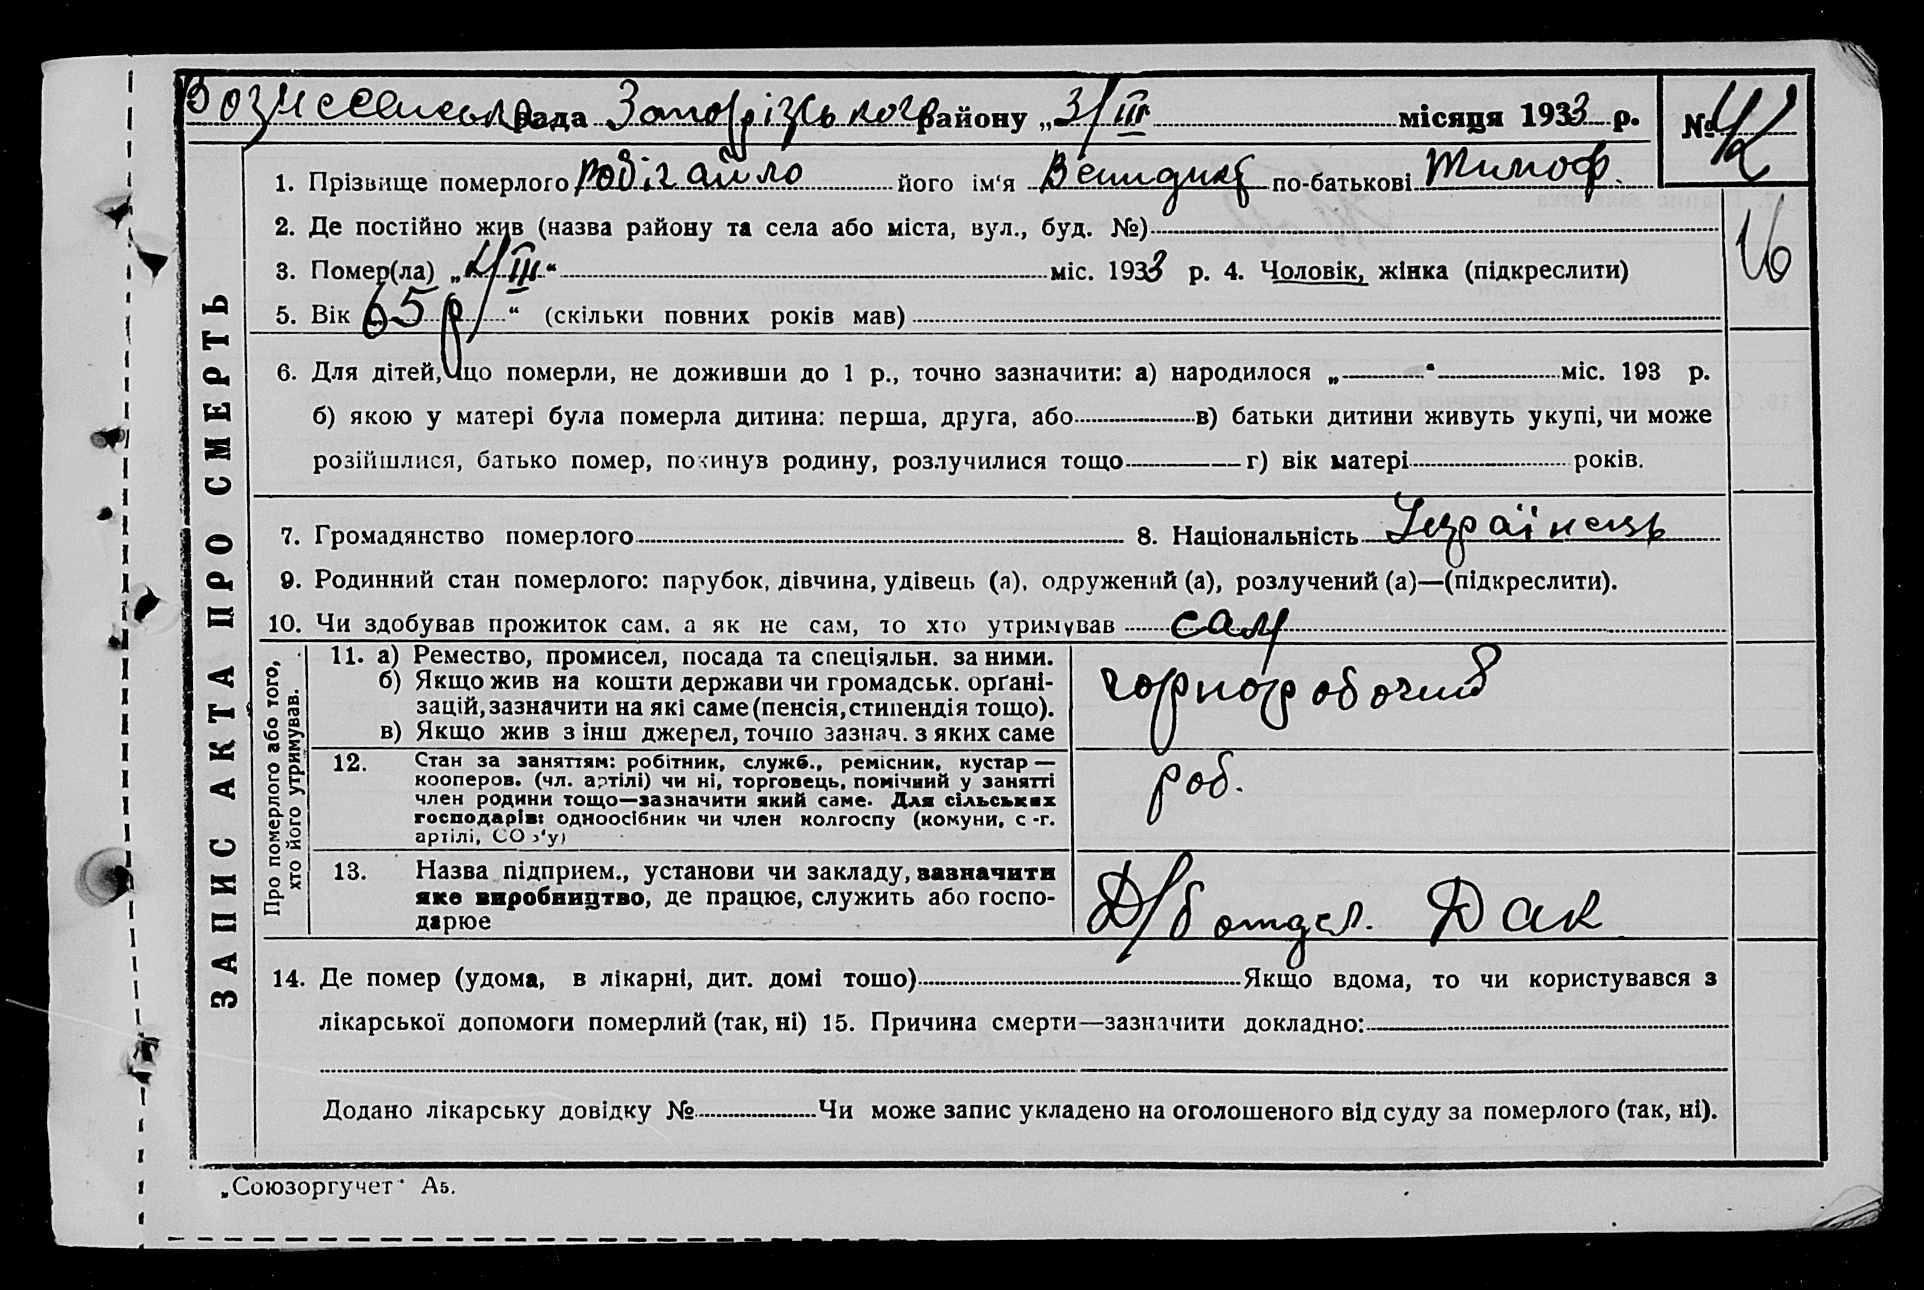 Вознесенська рада Запорізького району „3/III місяця 1933 р. № 42
1. Прізвище померлого Робігайло його ім‘я Венидикт по-батькові Тимоф.
2. Де постійно жив (назва району та села або міста, вул., буд. №)
16
3. Помер(ла) „4/III“ міс. 1933 р. 4. Чоловік, жінка (підкреслити)
5. Вік 65 р “ (скільки повних років мав)
6. Для дітей, що померли, не доживши до 1 р., точно зазначити: а) народилося „ “ міс. 193 р.
б) якою у матері була померла дитина: перша, друга, або в) батьки дитини живуть укупі, чи може
розійшлися, батько помер, покинув родину, розлучилися тощо г) вік матері років.
7. Громадянство померлого 8. Національність Українець
9. Родинний стан померлого: парубок, дівчина, удівець (а), одружений (а), розлучений (а)—(підкреслити).
10. Чи здобував прожиток сам, а як не сам, то хто утримував сам
ЗАПИС АКТА ПРО СМЕРТЬ
Про померлого або того,
хто його утримував.
11. а) Ремество, промисел, посада та спеціяльн. за ними.
б) Якщо жив на кошти держави чи громадськ. орґані-
зацій, зазначити на які саме (пенсія, стипендія тощо).
в) Якщо жив з інш джерел, точно зазнач. з яких саме
чорноробочий
12. Стан за заняттям: робітник, служб., ремісник, кустар —
кооперов. (чл. артілі) чи ні, торговець, помічний у занятті
член родини тощо—зазначити який саме. Для сільських
господарів: одноосібник чи член колгоспу (комуни, с.-г.
артілі, СОЗ‘у)
роб.
13. Назва підприєм., установи чи закладу, зазначити
яке виробництво, де працює, служить або госпо-
дарює
Д/б отдел. Дак
14. Де помер (удома, в лікарні, дит. домі тощо) Якщо вдома, то чи користувався з
лікарської допомоги померлий (так, ні) 15. Причина смерти—зазначити докладно:
Додано лікарську довідку № Чи може запис укладено на оголошеного від суду за померлого (так, ні).
„Союзоргучет“ А5.